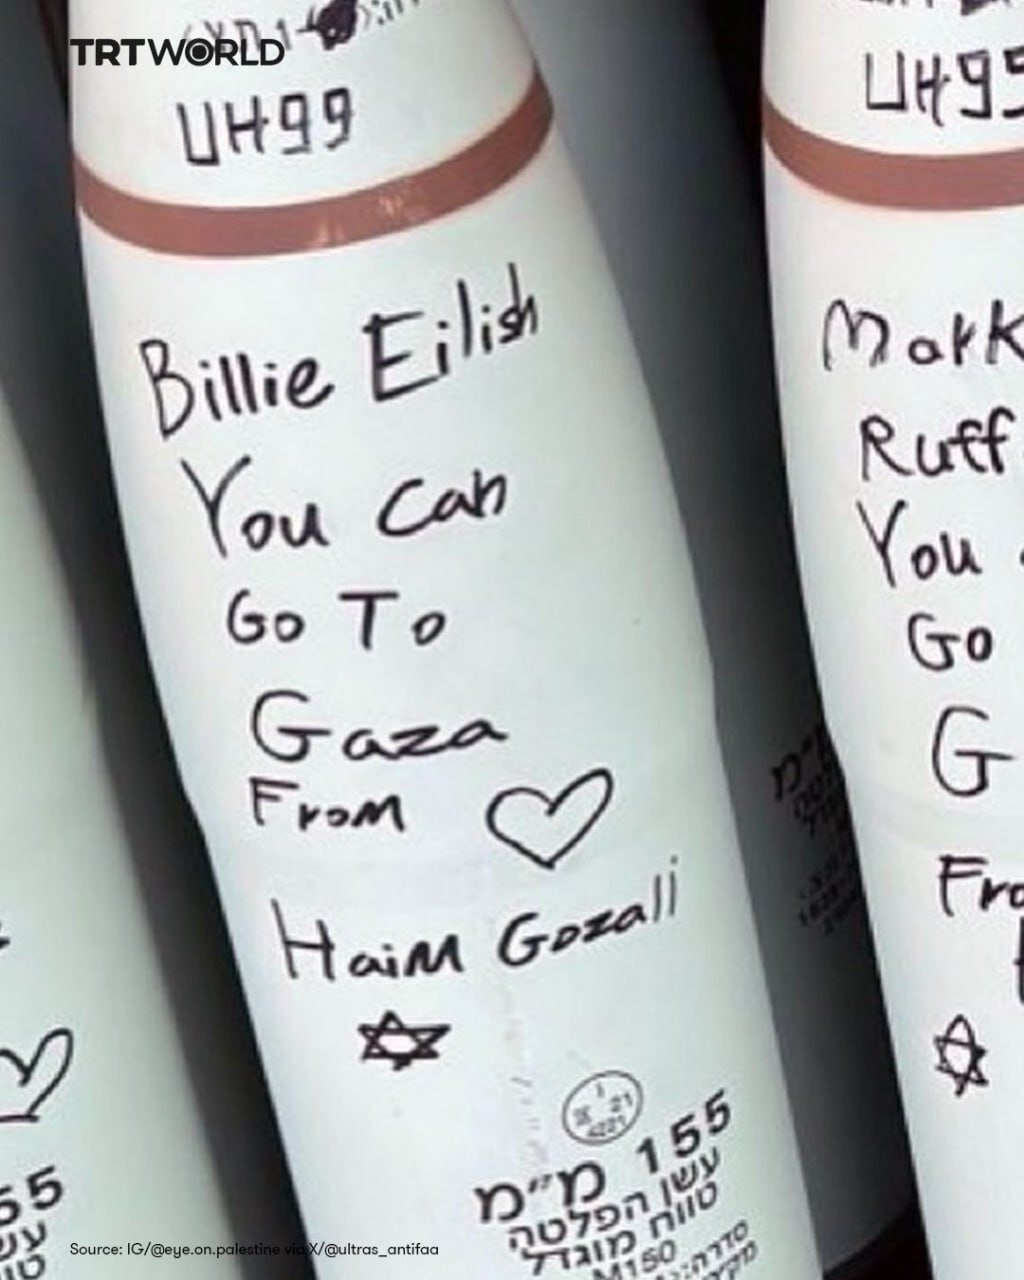 TRT WORLD
UH99
Billie Eilish
You can
Go To
Gaza
From ♡
Haim Gozali
✡
155 מ"מ
עשן הפלטה
טווח מוגדל
M150
סדרה:
UH95
Mark
Ruff
You
Go
G
Fro
✡
55
Source: IG/@eye.on.palestine via X/@ultras_antifaa